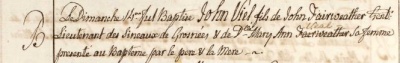 B
Le Dimanche 14 Jul Baptise John Viel fils de John Fairweather Gent:
Lieutenant des Fineaux de Grosniez & de Dlle Mary Ann Fairweather sa femme
presenté au Baptême par le pere & la Mere